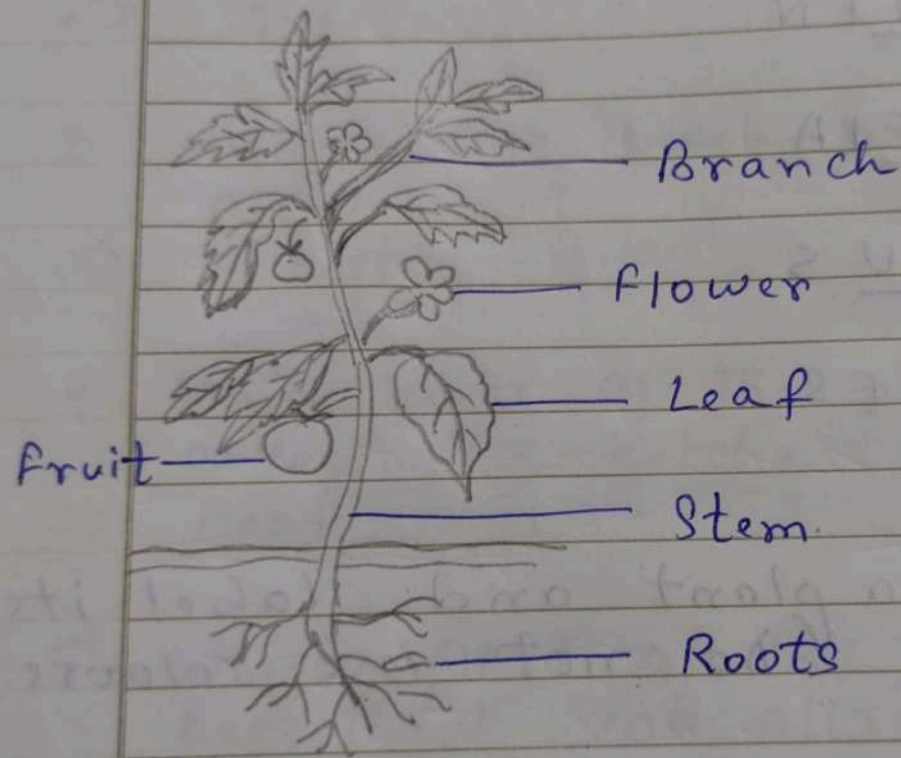 Branch
Flower
Leaf
Fruit
Stem.
Roots